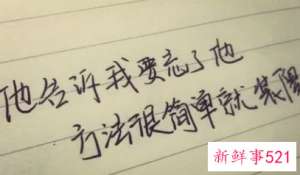 他告诉我要忘了他
方法很简单就装
新鲜事521